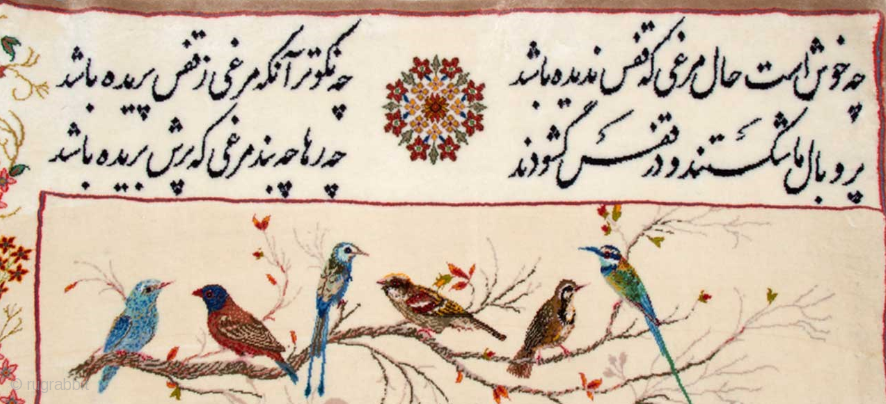 چه خوش است حال مرغی که قفس ندیده باشد
چه نکوتر آنکه مرغی ز قفس پریده باشد
پر و بال ما شکستند و در قفس گشودند
چه رها چه بند مرغی که پرش بریده باشد
© rugrabbit